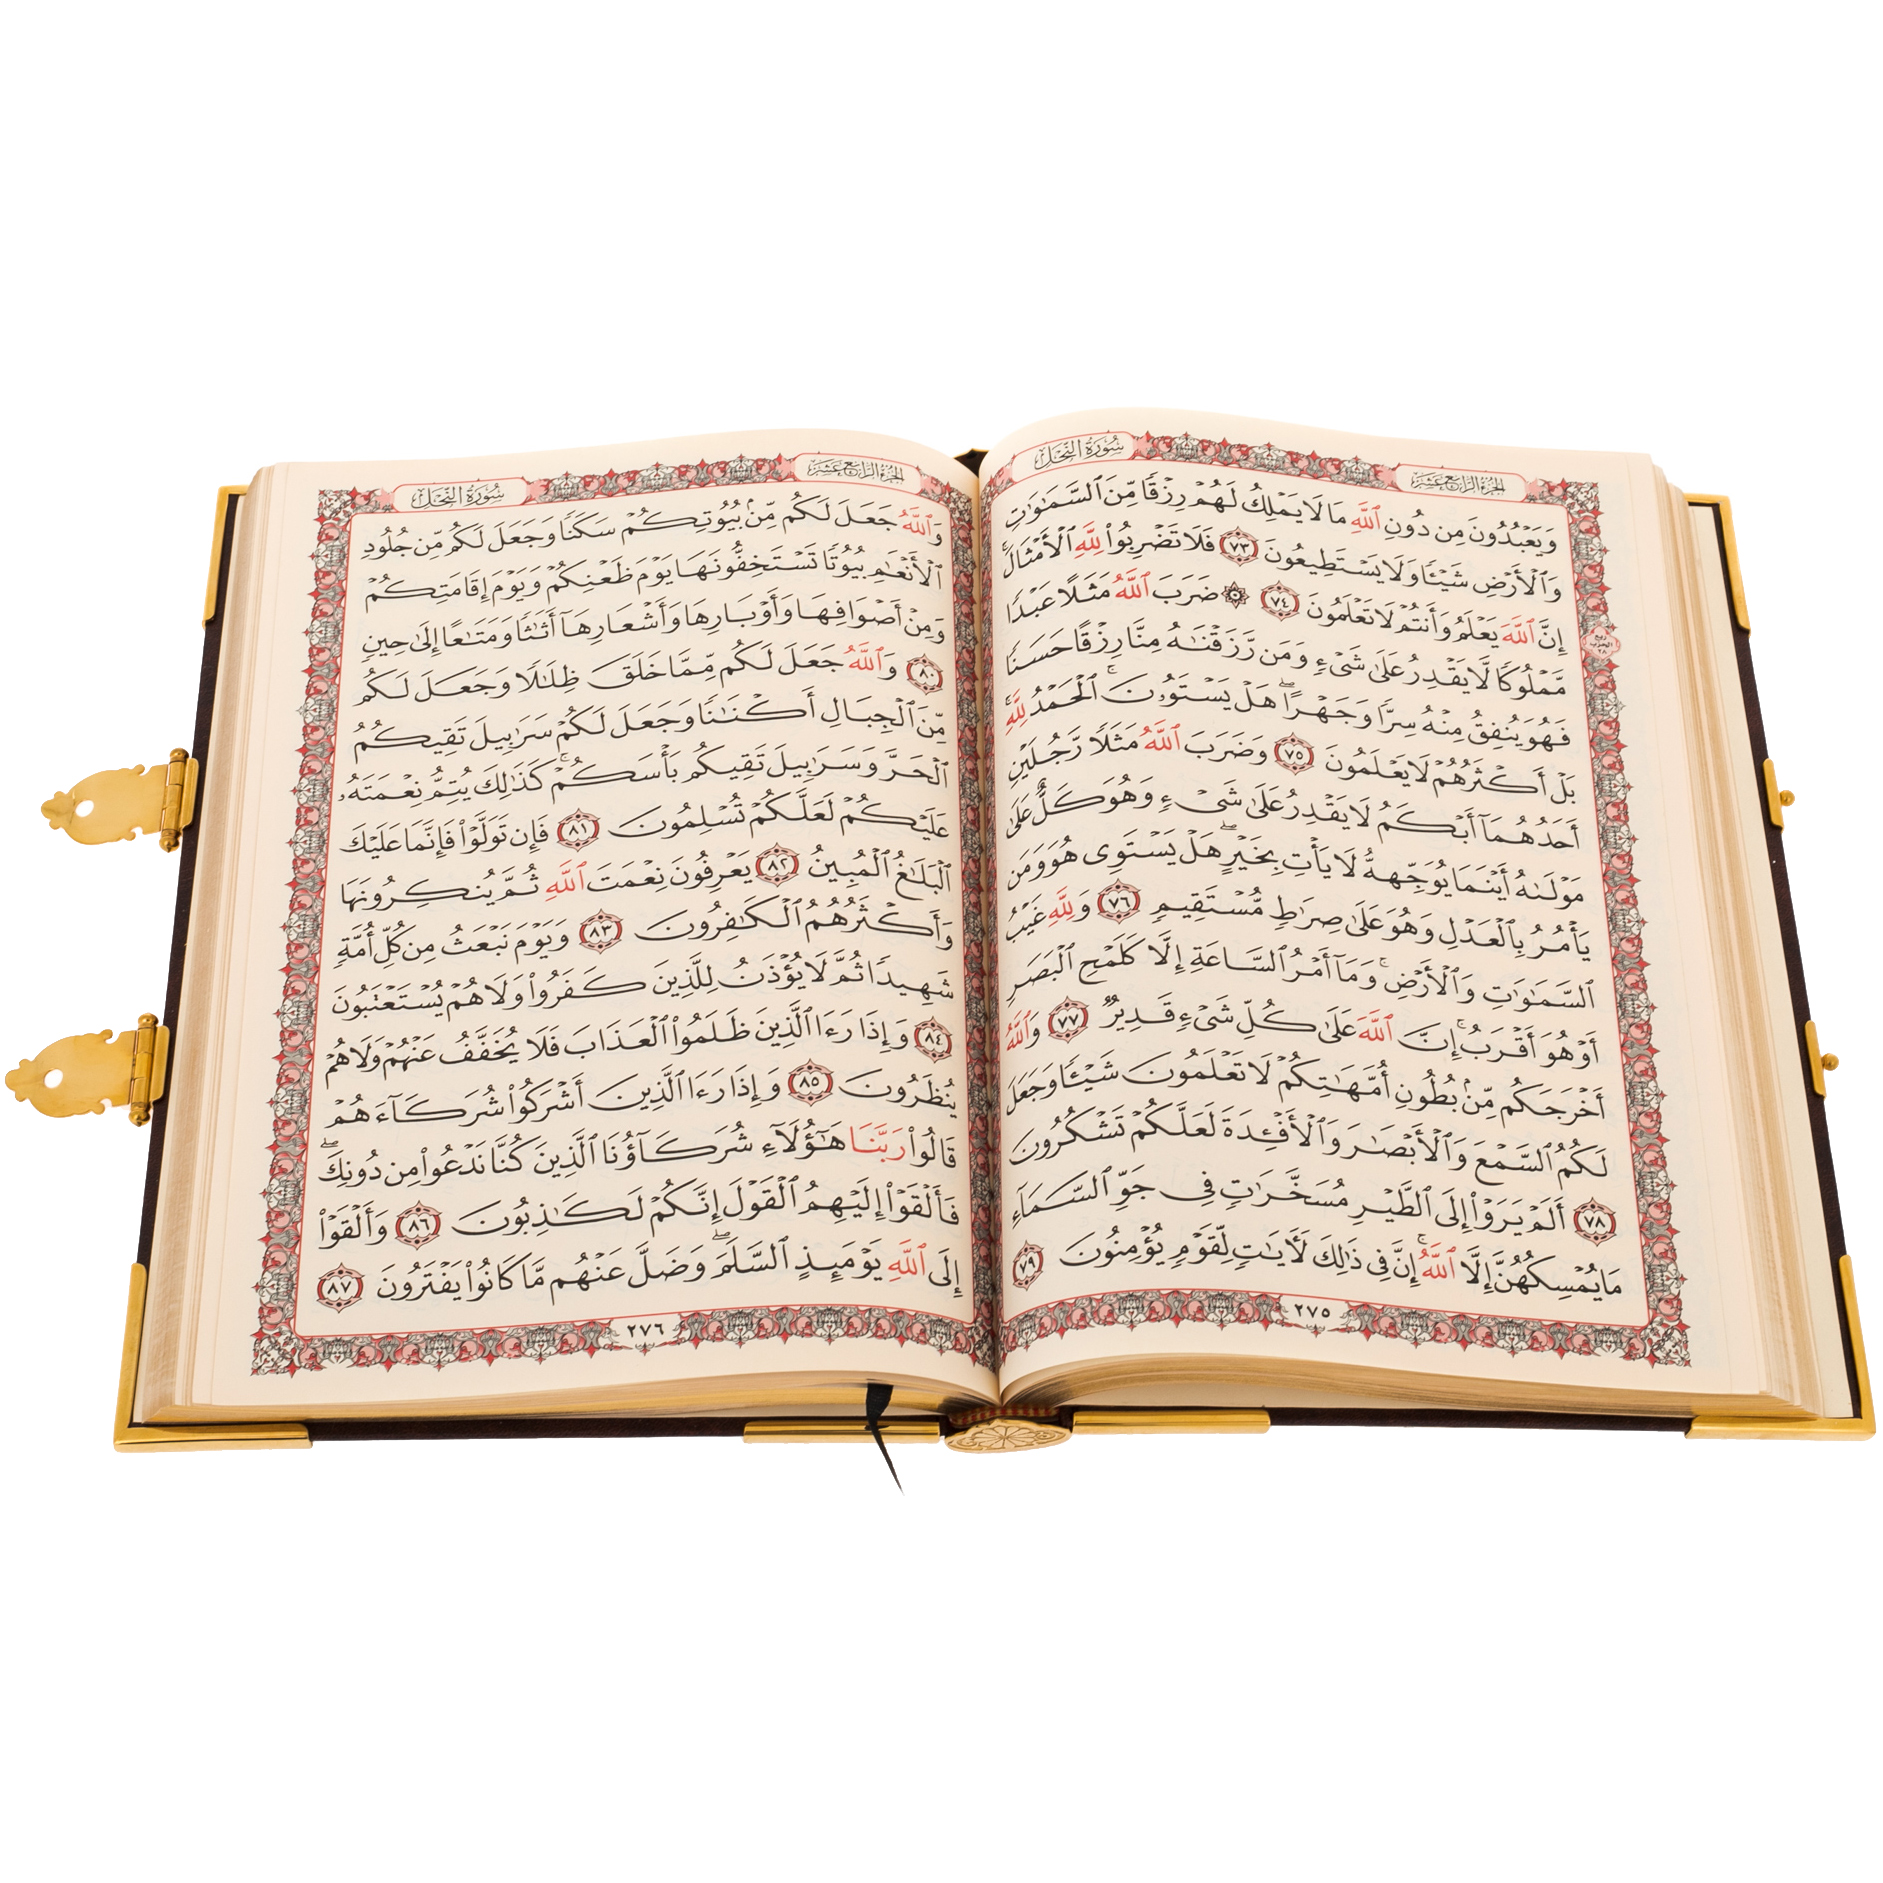 سُورَةُ النَّحْلِ
الجُزْءُ الرَّابِعَ عَشَرَ
وَيَعْبُدُونَ مِن دُونِ ٱللَّهِ مَا لَا يَمْلِكُ لَهُمْ رِزْقًا مِّنَ ٱلسَّمَٰوَٰتِ
وَٱلْأَرْضِ شَيْـًٔا وَلَا يَسْتَطِيعُونَ ٧٣ فَلَا تَضْرِبُوا۟ لِلَّهِ ٱلْأَمْثَالَ ۚ
إِنَّ ٱللَّهَ يَعْلَمُ وَأَنتُمْ لَا تَعْلَمُونَ ٧٤ ۞ ضَرَبَ ٱللَّهُ مَثَلًا عَبْدًا
مَّمْلُوكًا لَّا يَقْدِرُ عَلَىٰ شَىْءٍ وَمَن رَّزَقْنَٰهُ مِنَّا رِزْقًا حَسَنًا
فَهُوَ يُنفِقُ مِنْهُ سِرًّا وَجَهْرًا ۖ هَلْ يَسْتَوُۥنَ ۚ ٱلْحَمْدُ لِلَّهِ ۚ
بَلْ أَكْثَرُهُمْ لَا يَعْلَمُونَ ٧٥ وَضَرَبَ ٱللَّهُ مَثَلًا رَّجُلَيْنِ
أَحَدُهُمَآ أَبْكَمُ لَا يَقْدِرُ عَلَىٰ شَىْءٍ وَهُوَ كَلٌّ عَلَىٰ
مَوْلَىٰهُ أَيْنَمَا يُوَجِّههُّ لَا يَأْتِ بِخَيْرٍ ۖ هَلْ يَسْتَوِى هُوَ وَمَن
يَأْمُرُ بِٱلْعَدْلِ وَهُوَ عَلَىٰ صِرَٰطٍ مُّسْتَقِيمٍ ٧٦ وَلِلَّهِ غَيْبُ
ٱلسَّمَٰوَٰتِ وَٱلْأَرْضِ ۚ وَمَآ أَمْرُ ٱلسَّاعَةِ إِلَّا كَلَمْحِ ٱلْبَصَرِ
أَوْ هُوَ أَقْرَبُ ۚ إِنَّ ٱللَّهَ عَلَىٰ كُلِّ شَىْءٍ قَدِيرٌ ٧٧ وَٱللَّهُ
أَخْرَجَكُم مِّنۢ بُطُونِ أُمَّهَٰتِكُمْ لَا تَعْلَمُونَ شَيْـًٔا وَجَعَلَ
لَكُمُ ٱلسَّمْعَ وَٱلْأَبْصَٰرَ وَٱلْأَفْـِٔدَةَ لَعَلَّكُمْ تَشْكُرُونَ
٧٨ أَلَمْ يَرَوْا۟ إِلَى ٱلطَّيْرِ مُسَخَّرَٰتٍ فِى جَوِّ ٱلسَّمَآءِ
مَا يُمْسِكُهُنَّ إِلَّا ٱللَّهُ ۗ إِنَّ فِى ذَٰلِكَ لَءَايَٰتٍ لِّقَوْمٍ يُؤْمِنُونَ ٧٩
٢٧٥
ربع
الحزب
٢٨
سُورَةُ النَّحْلِ
الجُزْءُ الرَّابِعَ عَشَرَ
وَٱللَّهُ جَعَلَ لَكُم مِّنۢ بُيُوتِكُمْ سَكَنًا وَجَعَلَ لَكُم مِّن جُلُودِ
ٱلْأَنْعَٰمِ بُيُوتًا تَسْتَخِفُّونَهَا يَوْمَ ظَعْنِكُمْ وَيَوْمَ إِقَامَتِكُمْ
وَمِنْ أَصْوَافِهَا وَأَوْبَارِهَا وَأَشْعَارِهَآ أَثَٰثًا وَمَتَٰعًا إِلَىٰ حِينٍ
٨٠ وَٱللَّهُ جَعَلَ لَكُم مِّمَّا خَلَقَ ظِلَٰلًا وَجَعَلَ لَكُم
مِّنَ ٱلْجِبَالِ أَكْنَٰنًا وَجَعَلَ لَكُمْ سَرَٰبِيلَ تَقِيكُمُ
ٱلْحَرَّ وَسَرَٰبِيلَ تَقِيكُم بَأْسَكُمْ ۚ كَذَٰلِكَ يُتِمُّ نِعْمَتَهُۥ
عَلَيْكُمْ لَعَلَّكُمْ تُسْلِمُونَ ٨١ فَإِن تَوَلَّوْا۟ فَإِنَّمَا عَلَيْكَ
ٱلْبَلَٰغُ ٱلْمُبِينُ ٨٢ يَعْرِفُونَ نِعْمَتَ ٱللَّهِ ثُمَّ يُنكِرُونَهَا
وَأَكْثَرُهُمُ ٱلْكَٰفِرُونَ ٨٣ وَيَوْمَ نَبْعَثُ مِن كُلِّ أُمَّةٍ
شَهِيدًا ثُمَّ لَا يُؤْذَنُ لِلَّذِينَ كَفَرُوا۟ وَلَا هُمْ يُسْتَعْتَبُونَ
٨٤ وَإِذَا رَءَا ٱلَّذِينَ ظَلَمُوا۟ ٱلْعَذَابَ فَلَا يُخَفَّفُ عَنْهُمْ وَلَا هُمْ
يُنظَرُونَ ٨٥ وَإِذَا رَءَا ٱلَّذِينَ أَشْرَكُوا۟ شُرَكَآءَهُمْ
قَالُوا۟ رَبَّنَا هَٰٓؤُلَآءِ شُرَكَآؤُنَا ٱلَّذِينَ كُنَّا نَدْعُوا۟ مِن دُونِكَ ۖ
فَأَلْقَوْا۟ إِلَيْهِمُ ٱلْقَوْلَ إِنَّكُمْ لَكَٰذِبُونَ ٨٦ وَأَلْقَوْا۟
إِلَى ٱللَّهِ يَوْمَئِذٍ ٱلسَّلَمَ ۖ وَضَلَّ عَنْهُم مَّا كَانُوا۟ يَفْتَرُونَ ٨٧
٢٧٦